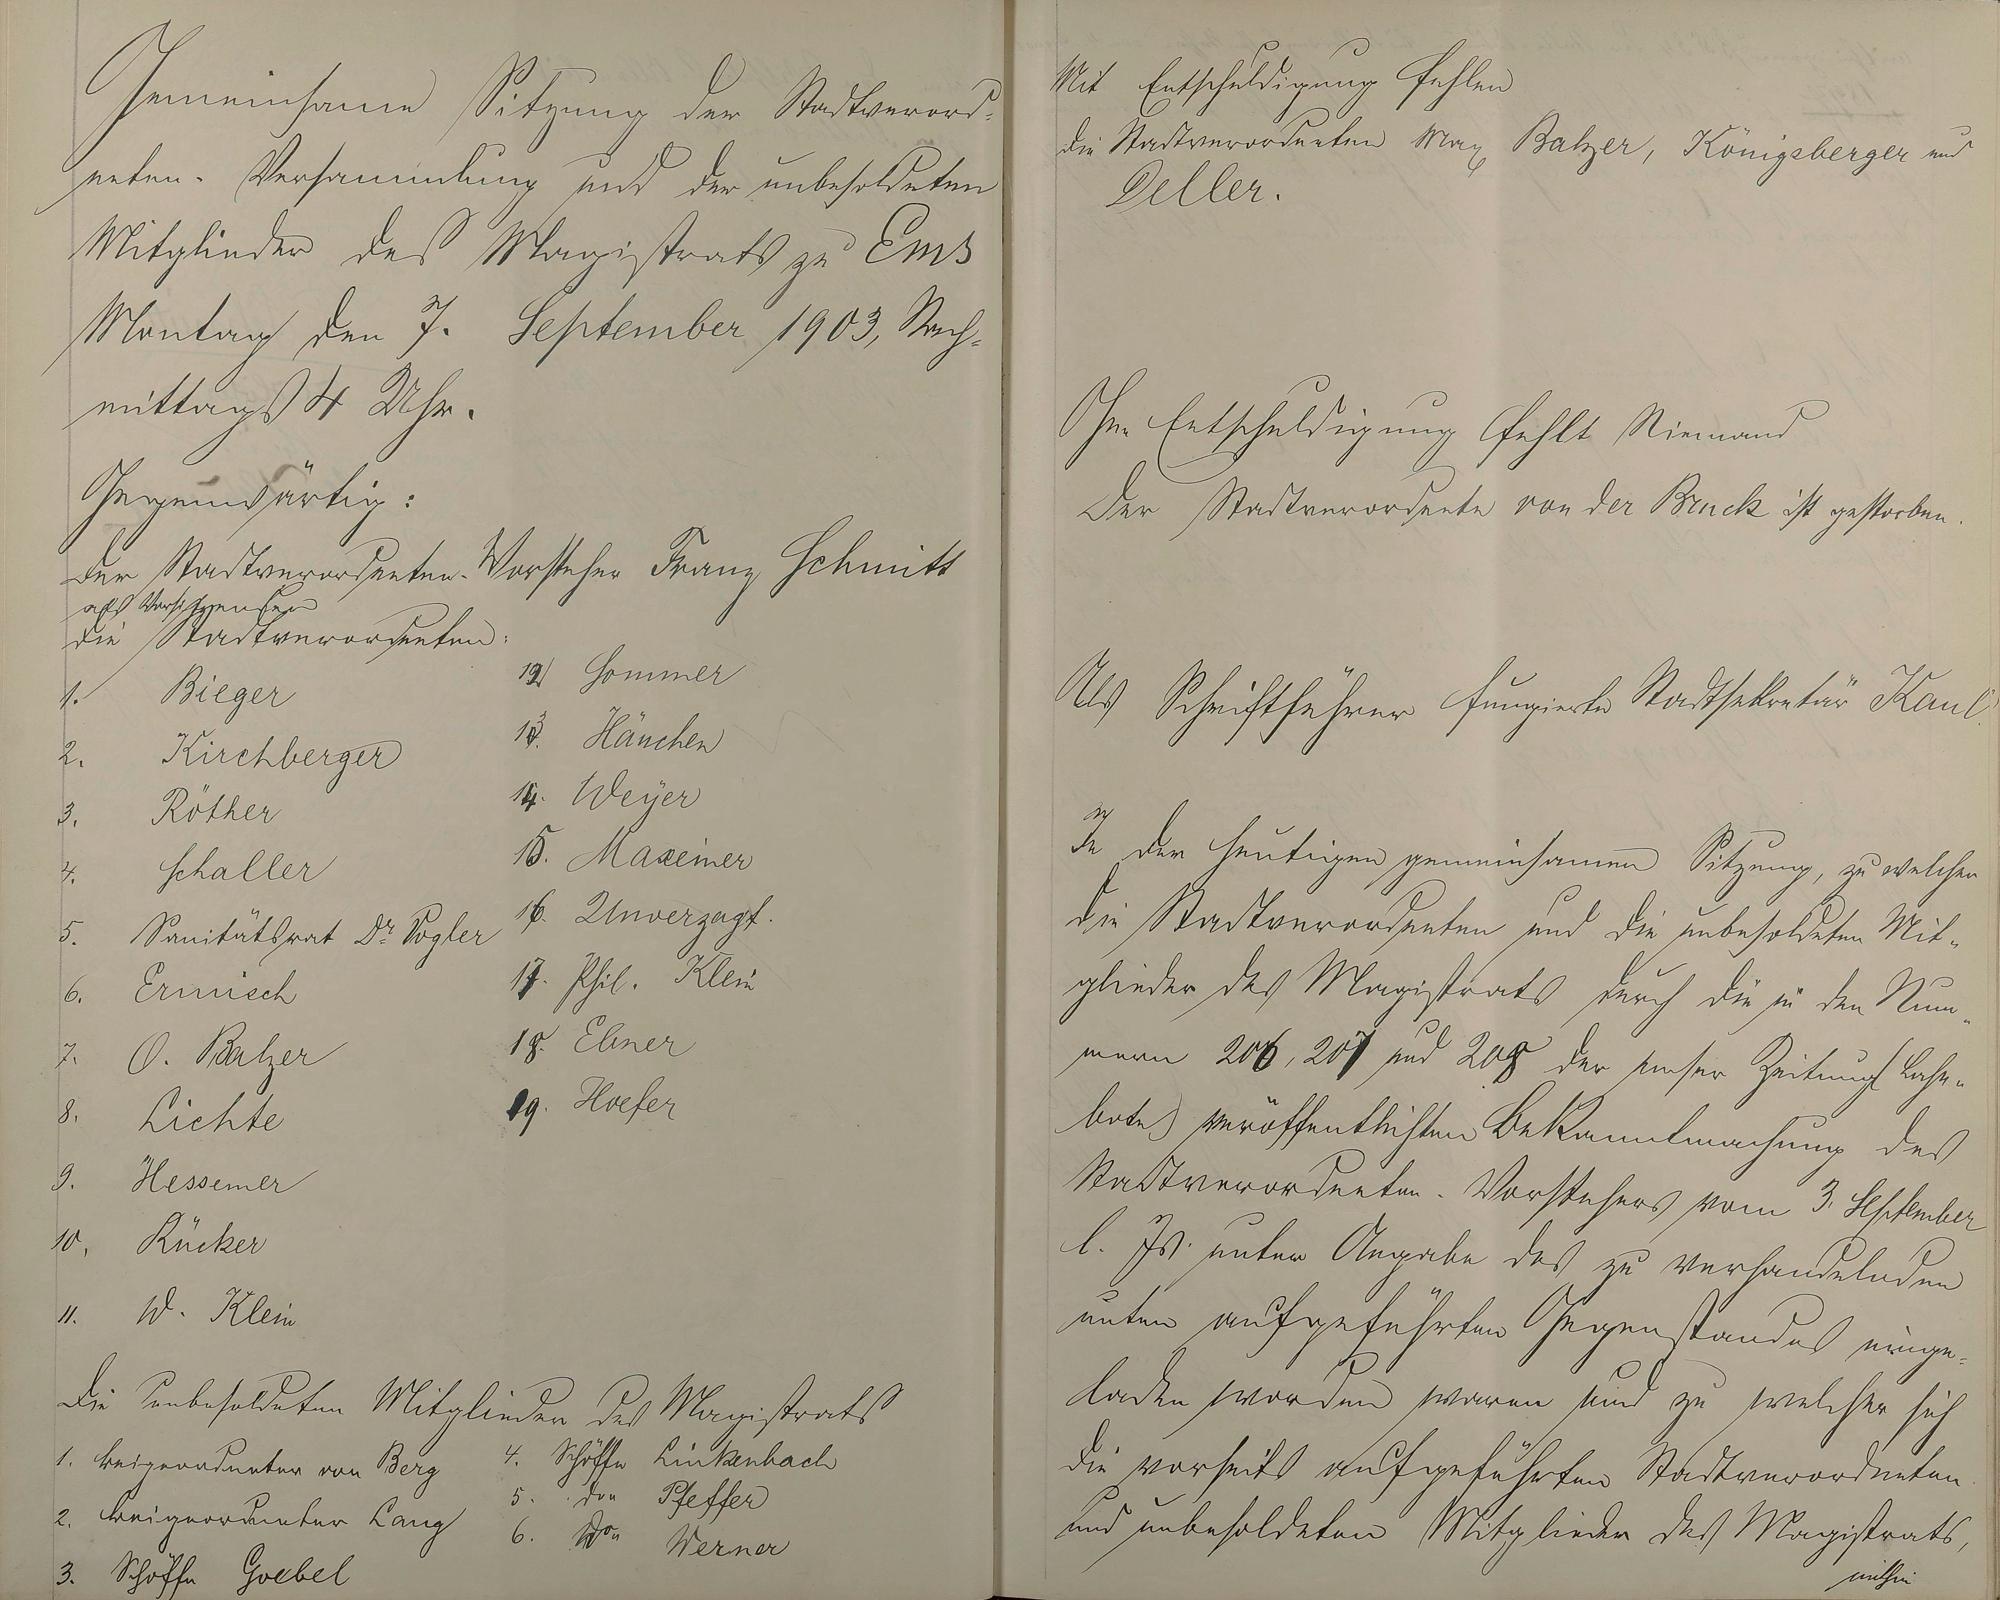 Gemeinsame Sitzung der Stadtverord-
neten-Versammlung und der unbesoldeten
Mitglieder des Magistrats zu Ems
Montag den 7. September 1903, Nach-
mittags 4 Uhr.
Gegenwärtig:
Der Stadtverordneten-Vorsteher Franz Schmitt
als Vorsitzender
die Stadtverordneten:
1. Bieger
2. Kirchberger
3. Röther
4. Schaller
5. Sanitätsrat Dr. Vogler
6. Ermisch
7. O. Balzer
8. Lichte
9. Hessemer
10. Rücker
11. W. Klein
12. Sommer
13. Hänchen
14. Weyer
15. Maxeiner
16. Unverzagt.
17. Phil. Klein
18. Ebner
19. Hoefer
Die unbesoldeten Mitglieder des Magistrats
1. Beigeordneter von Berg
2. Beigeordneter Lang
3. Schöffe Goebel
4. Schöffe Linkenbach
5. do Pfeffer
6. do Werner
Mit Entschuldigung fehlen
die Stadtverordneten Max Balzer, Königsberger und
Deller.
Ohne Entschuldigung fehlt Niemand
Der Stadtverordnete von der Bruck ist gestorben.
Als Schriftführer fungierte Stadtsekretär Kaul.
In der heutigen gemeinsamen Sitzung, zu welcher
die Stadtverordneten und die unbesoldeten Mit-
glieder des Magistrats durch die in den Num-
mern 206, 207 und 208 der Emser Zeitung (Lahn-
bote) veröffentlichten Bekanntmachung des
Stadtverordneten-Vorstehers vom 3. September
l. Js. unter Angabe des zu verhandelnden
unten aufgeführten Gegenstandes einge-
laden worden waren und zu welcher sich
die vorseits aufgeführten Stadtverordneten
und unbesoldeten Mitglieder des Magistrats,
mithin